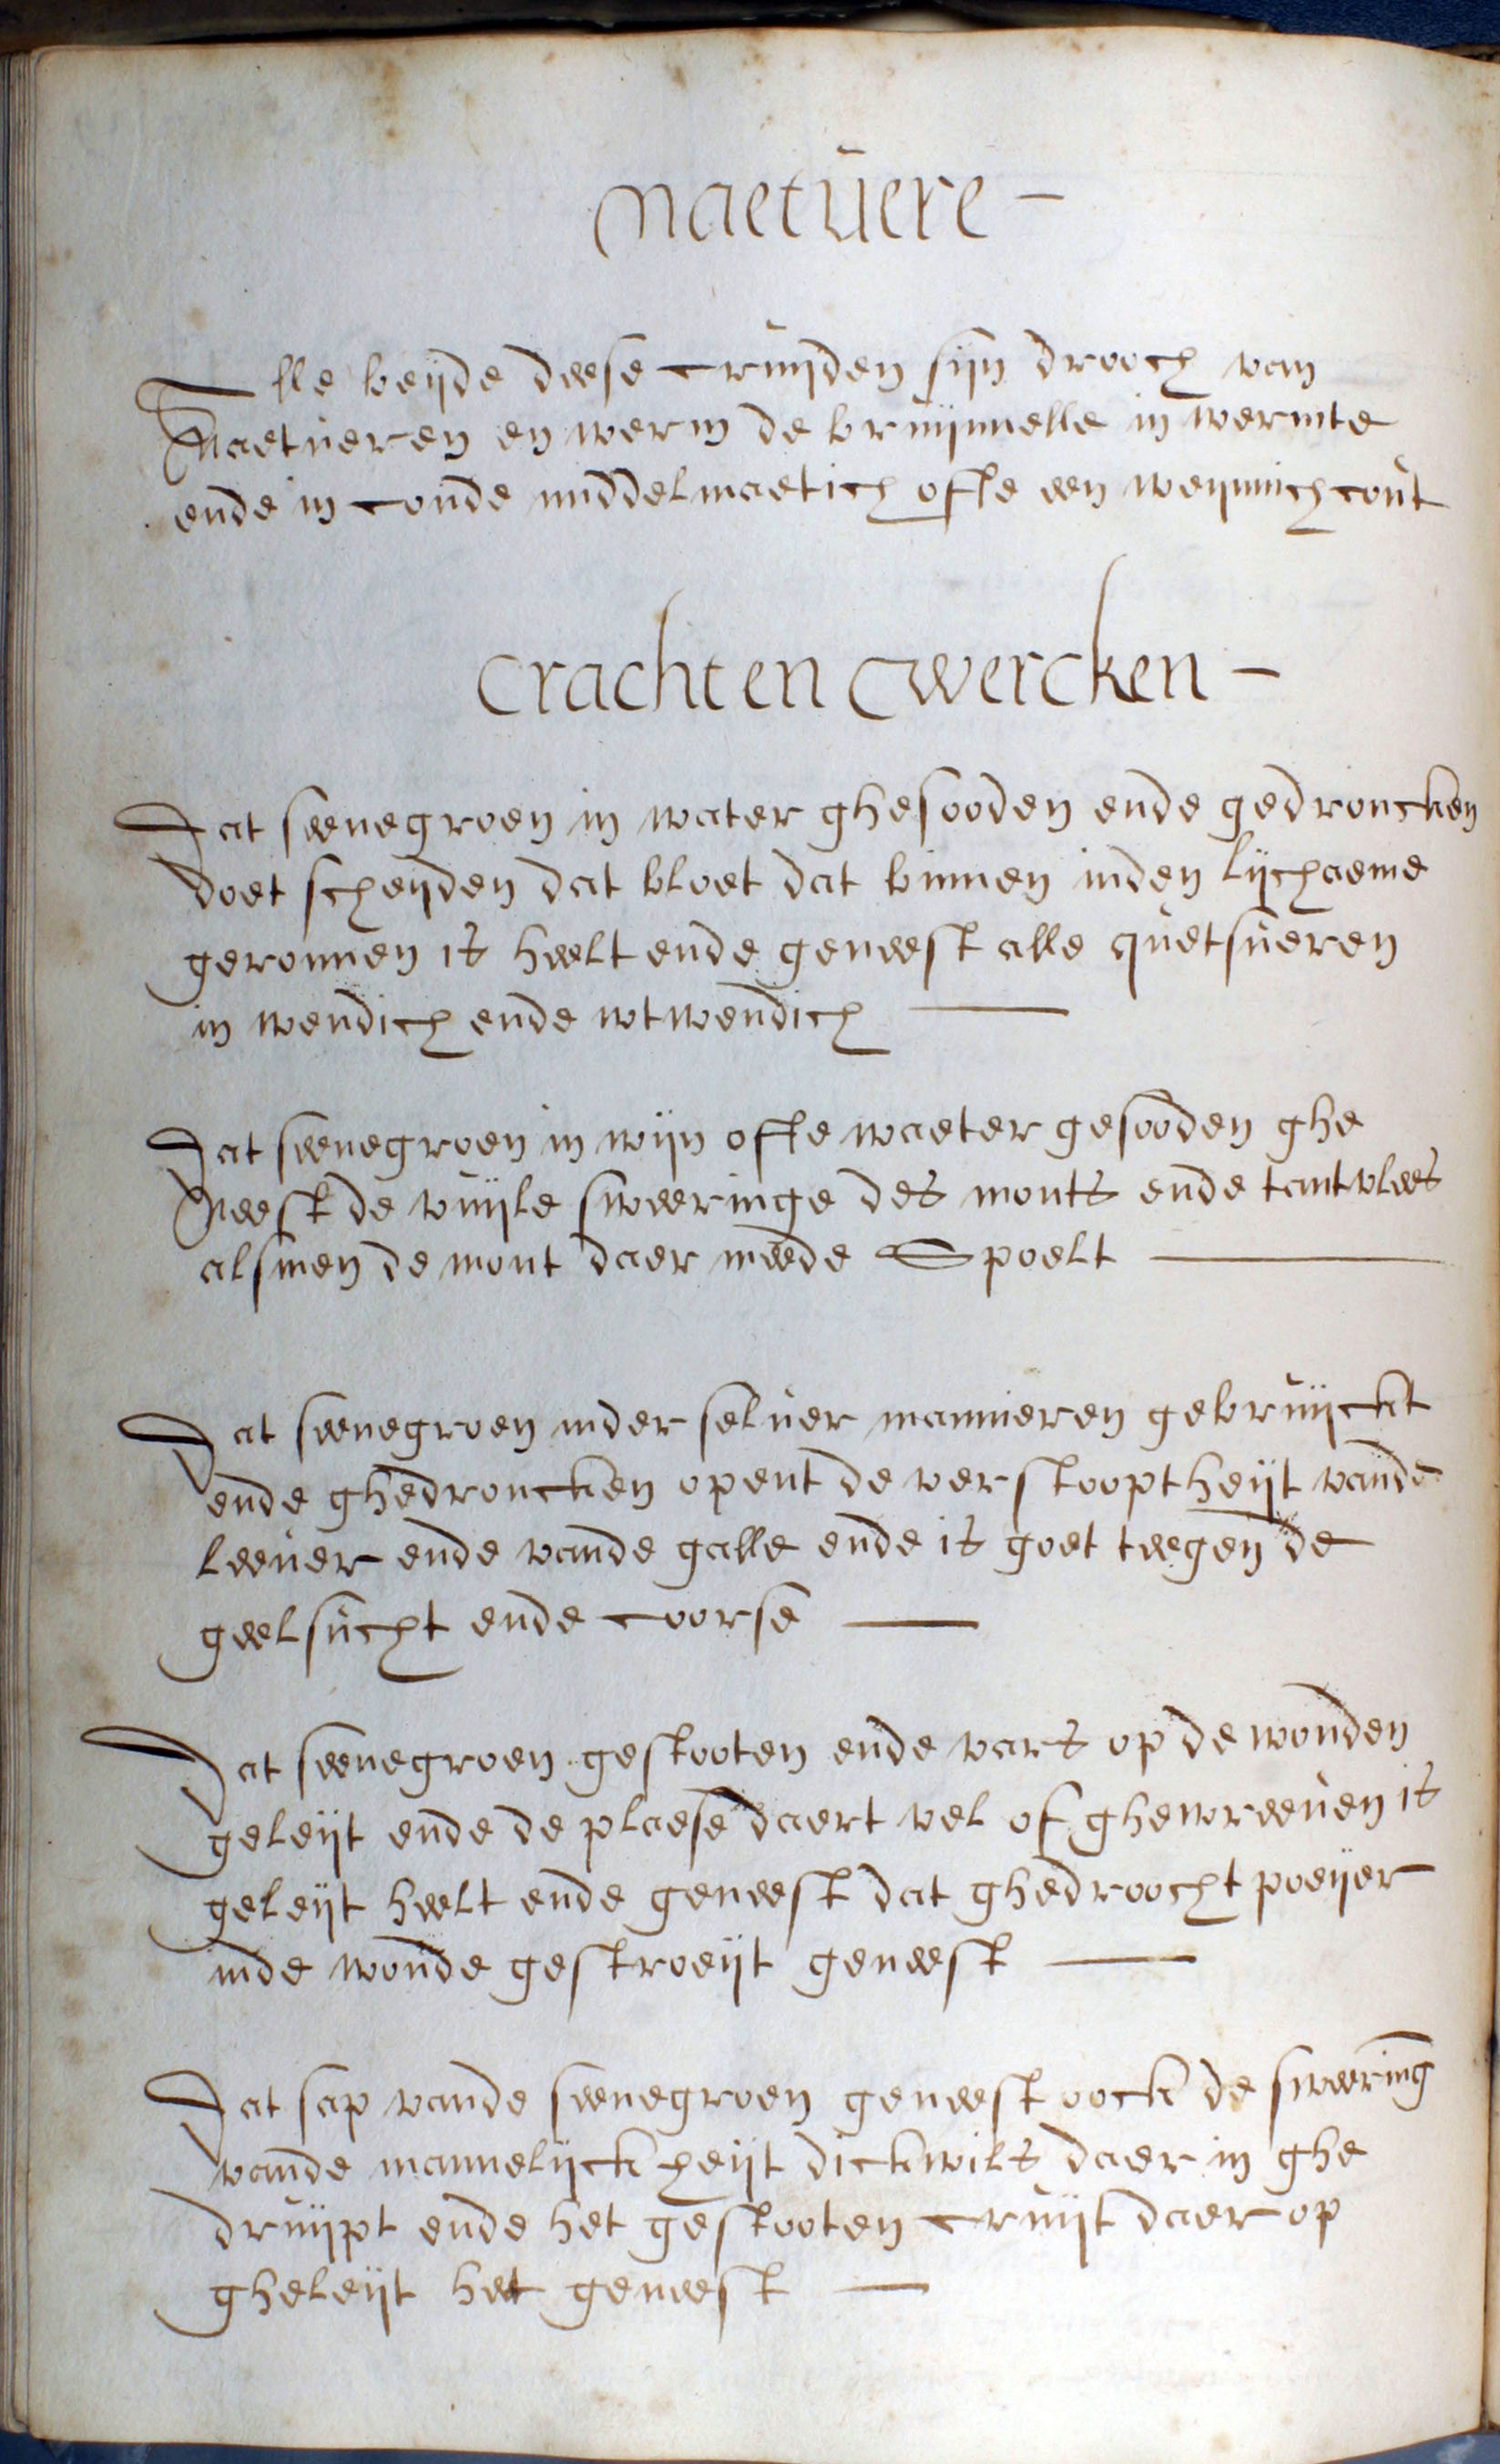 Naetuere –
Alle beijde deese cruijden sijn drooch van
Naetueren en werm de bruijnnelle in wermte
ende in coude middelmaetich ofte een weijnnich cout
Crachten Ewercken –
Dat seenegroen in water ghesooden ende gedroncken
doet scheijden dat bloet dat binnen inden lijchaeme
geronnen is heelt ende geneest alle quetsueren
in wendich ende wtwendich
Dat seenegroen in wijn ofte waeter gesooden ghe
Neest de vuijle sweeringe des monts ende tantvlees
alsmen de mont daer meede Spoelt
Dat seenegroen inder seluer mannieren gebruijckt
ende ghedroncken opent de verstooptheijt vande
leeuer ende vande galle ende is goet teegen de
geelsucht ende coorse
Dat seenegroen gestooten ende vars op de wonden
geleijt ende de plaese daert vel of ghewreeuen is
geleijt heelt ende geneest dat ghedroocht poeijer
inde wonde gestroeijt geneest
Dat sap vande seenegroen geneest oock de sweering
vande mannelijckheijt dickwils daer in ghe
druijpt ende het gestooten cruijt daer op
gheleijt het geneest